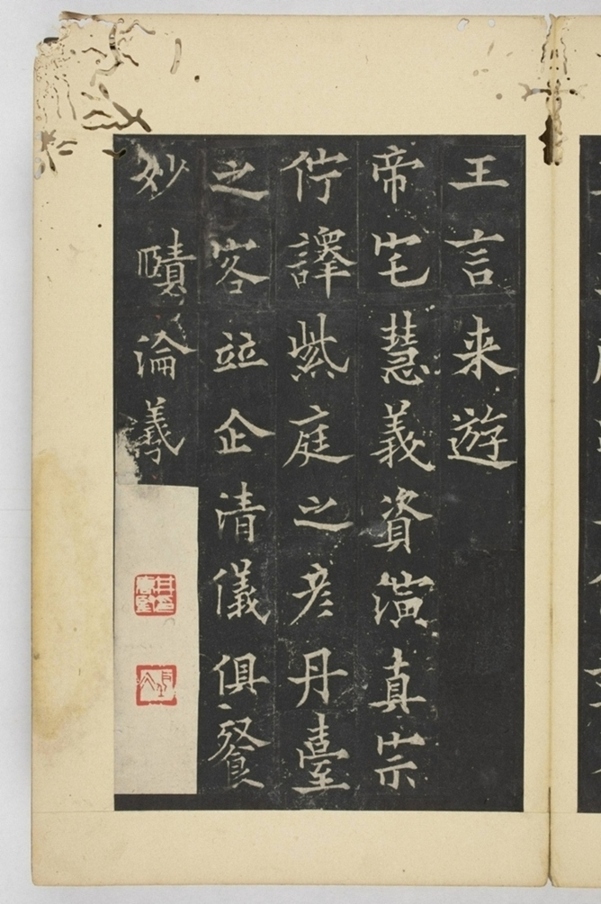 王言来遊
帝宅慧義資演真宗
佇譯紫庭之彦丹臺
之客竝企清儀俱餐
妙賾淪羲